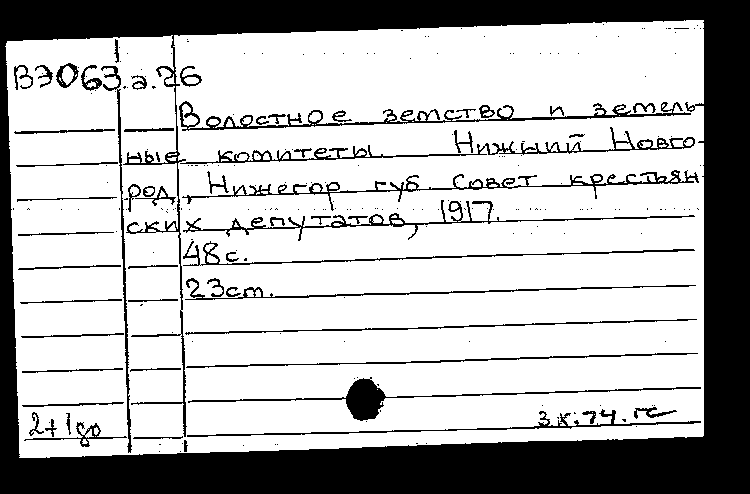 ВЭ063.а.26
Волостное земство и земель-
ные комитеты. Нижний Новго-
род, Нижегор губ совет крестьян-
ских депутатов, 1917.
48с.
23cm.
2+1до
3.к.74.гс